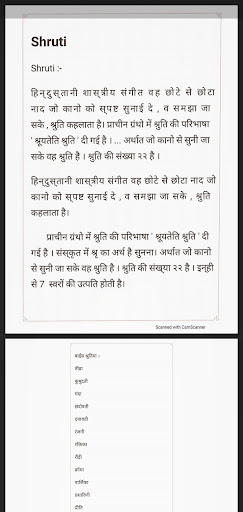 Shruti
Shruti :-
हिन्दुस्तानी शास्त्रीय संगीत वह छोटे से छोटा
नाद जो कानो को स्पष्ट सुनाई दे , व समझा जा
सके , श्रुति कहलाता है। प्राचीन ग्रंथो में श्रुति की परिभाषा
' श्रूयतेति श्रुति ' दी गई है । ... अर्थात जो कानो से सुनी जा
सके वह श्रुति है । श्रुति की संख्या २२ है ।
हिन्दुस्तानी शास्त्रीय संगीत वह छोटे से छोटा नाद जो
कानो को स्पष्ट सुनाई दे , व समझा जा सके , श्रुति
कहलाता है।
प्राचीन ग्रंथो में श्रुति की परिभाषा ' श्रूयतेति श्रुति ' दी
गई है । संस्कृत में श्रृ का अर्थ है सुनना। अर्थात जो कानो
से सुनी जा सके वह श्रुति है । श्रुति की संख्या २२ है । इन्ही
से 7 स्वरों की उत्पति होती है।
Scanned with CamScanner
बाईस श्रुतिया :-
तीव्रा
कुमुद्वती
मंदा
छंदोवती
दयावती
रंजनी
रक्तिका
रौद्री
क्रोधा
वज्रिका
प्रसारिणी
प्रीति